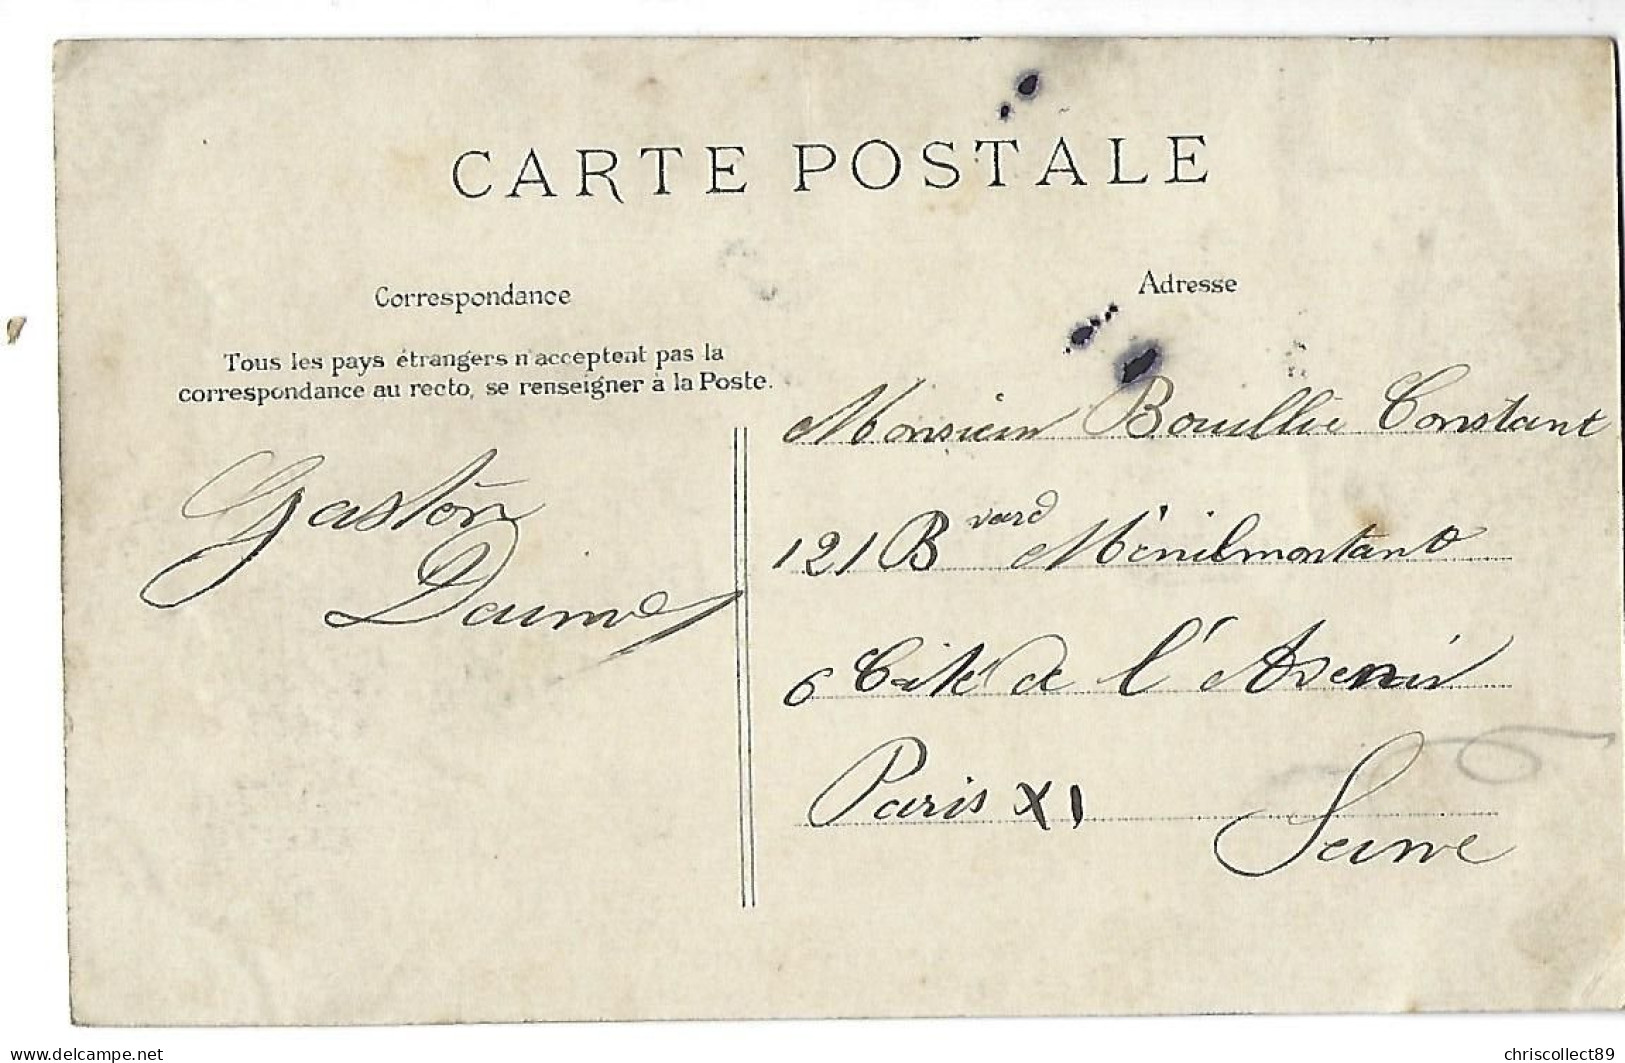 CARTE POSTALE
Correspondance
Tous les pays étrangers n'acceptent pas la
correspondance au recto, se renseigner à la Poste.
Gaston
Adresse
Monsieur Bouillie Constant
121 Bvard Ménilmontant
6 Cité de l'Avenir
Paris XI
Seine
delcampe.net
chriscollect89